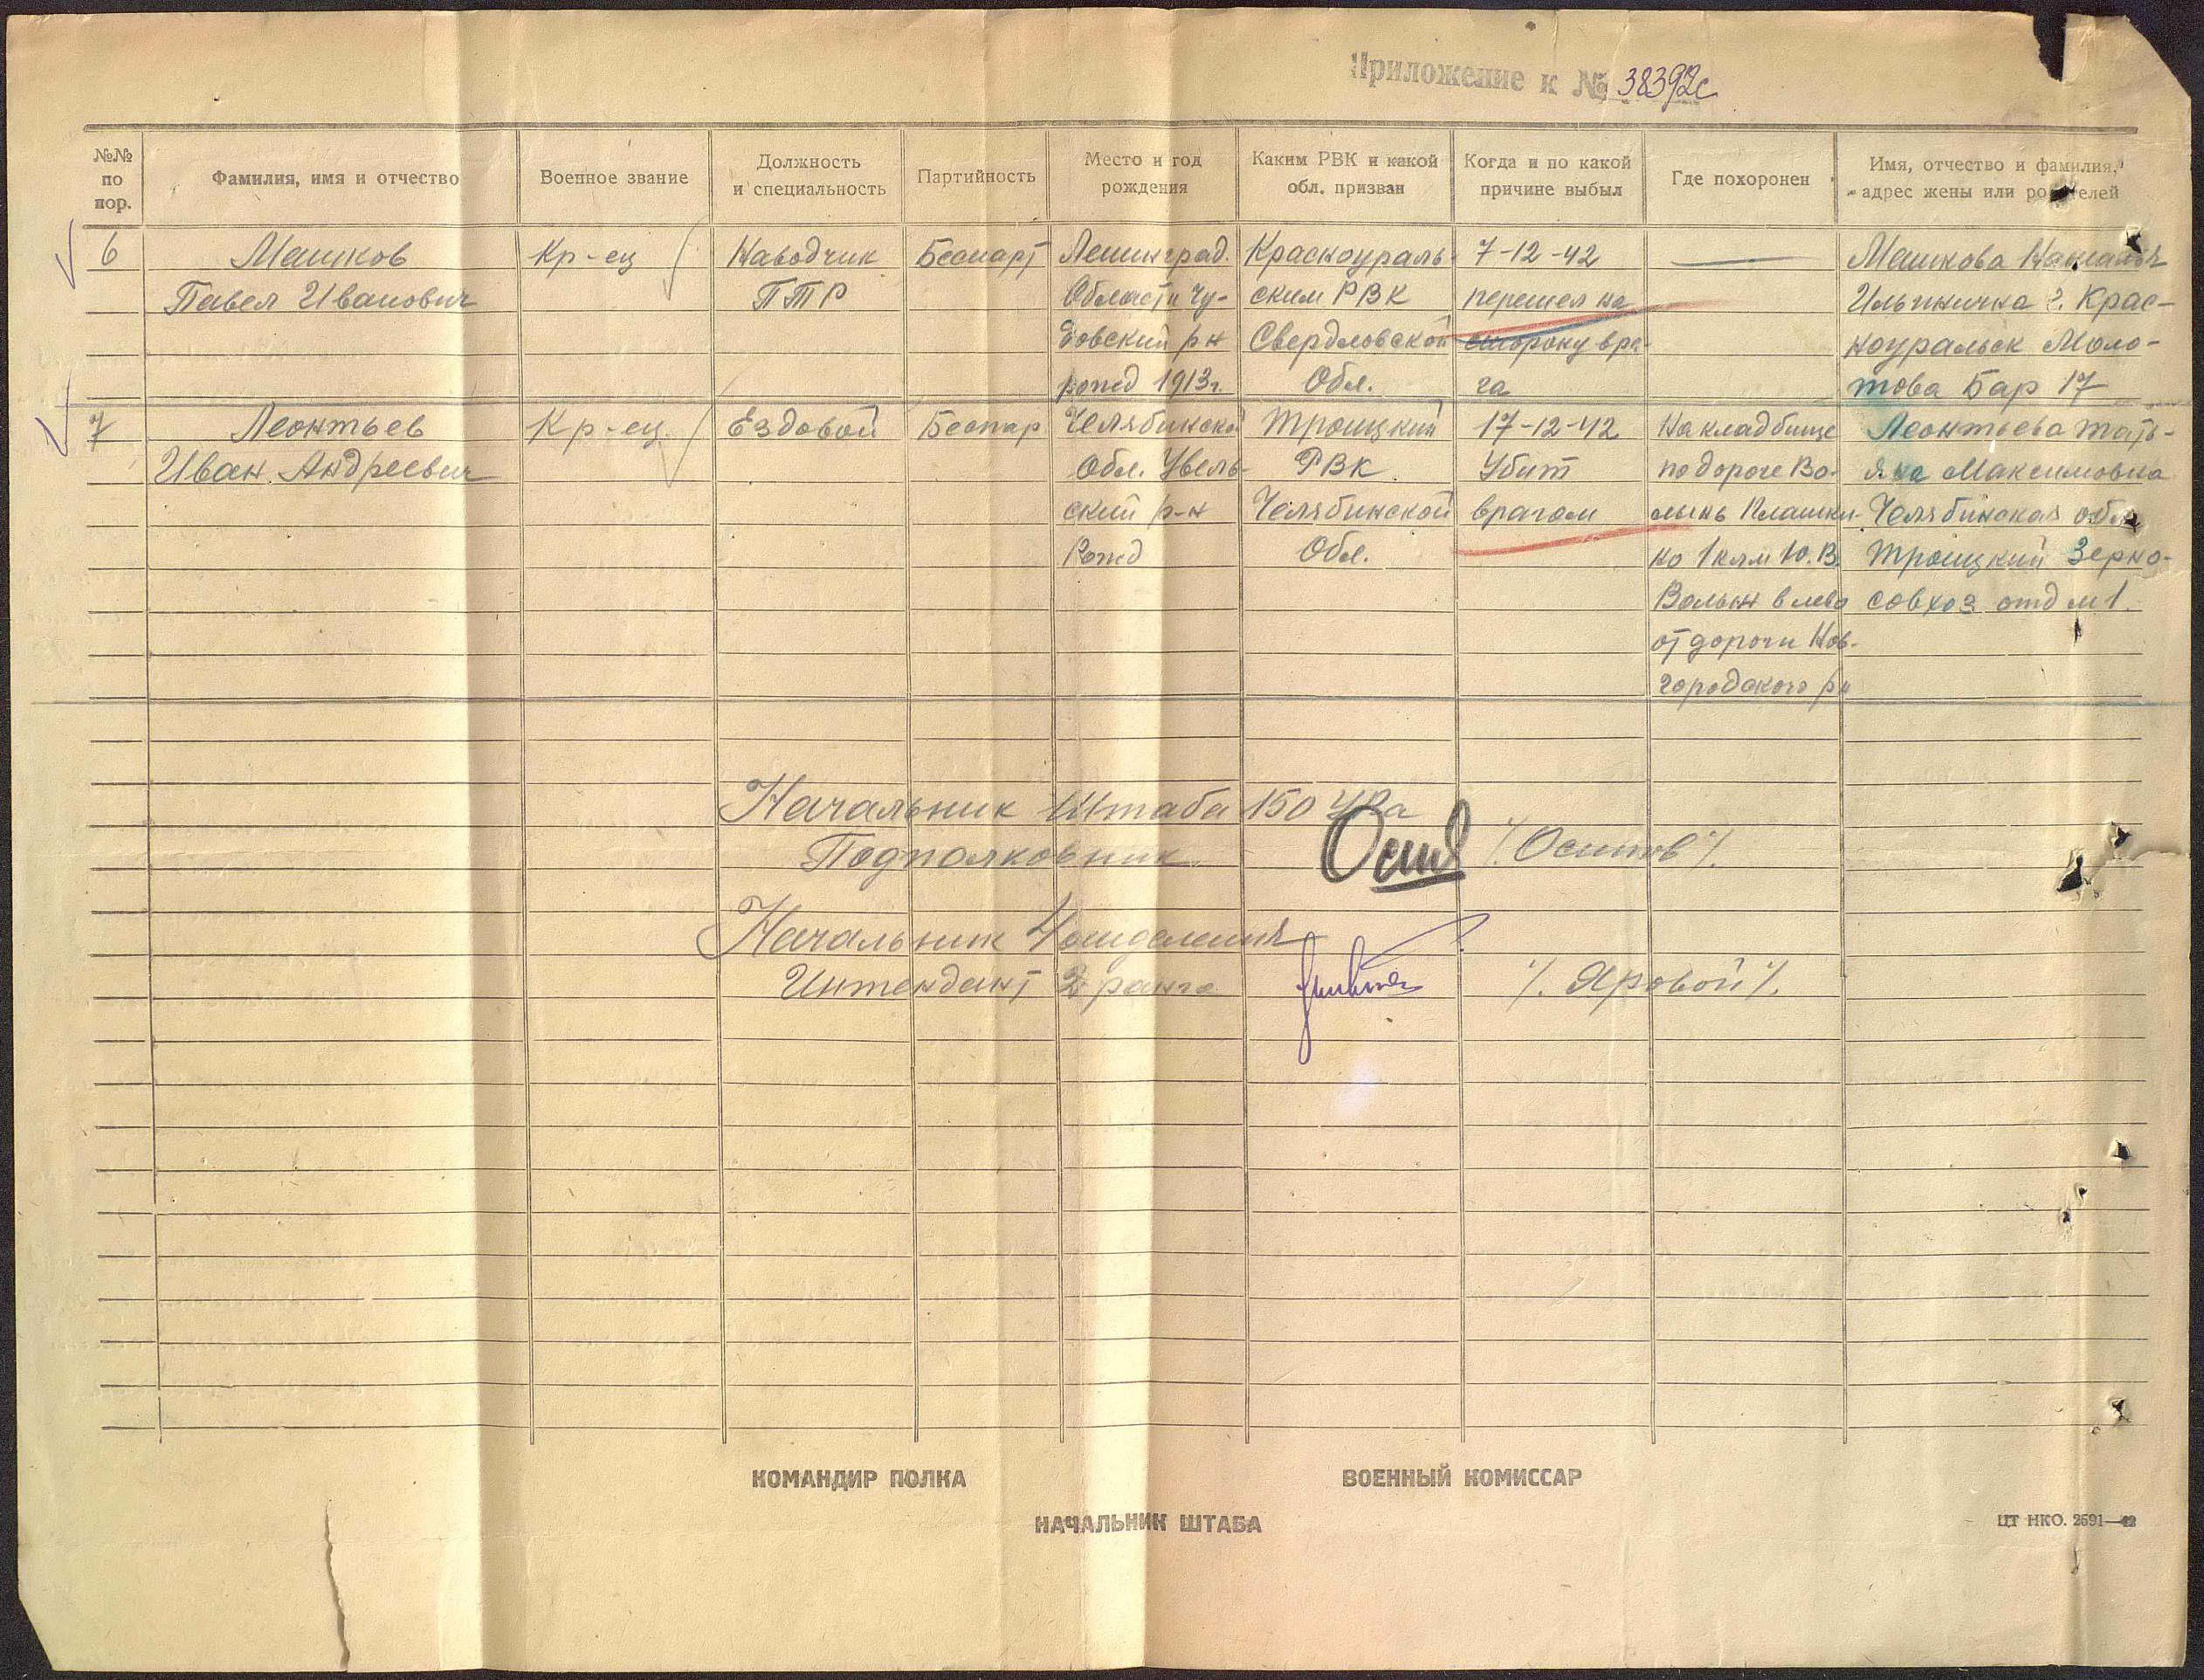 Приложение к № 38392с
№№ по пор.
Фамилия, имя и отчество
Военное звание
Должность и специальность
Партийность
Место и год рождения
Каким РВК и какой обл. призван
Когда и по какой причине выбыл
Где похоронен
Имя, отчество и фамилия, адрес жены или родителей
6
Машков
Павел Иванович
Кр-ец
Наводчик
ПТР
Беспарт
Ленинград.
Области Чу-
довский р-н
рожд 1913г.
Красноураль-
ским РВК
Свердловской
Обл.
7-12-42
перешел на
сторону вра-
га
Машкова
Ильинична г. Крас-
ноуральск Моло-
това Бар 17
7
Леонтьев
Иван Андреевич
Кр-ец.
Ездовой
Беспар
Челябинской
Обл. Увель-
ский р-н
Рожд
Троицкий
РВК
Челябинской
Обл.
17-12-42
Убит
врагом
На кладбище
по дороге Во-
лынь Плашки-
но 1 клм Ю.В.
Волын влево
от дороги Нов-
городского рн
Леонтьева Тать-
яна Максимовна
Челябинская обл
Троицкий Зерно-
совхоз отд м1.
Начальник Штаба 150 УРа
Подполковник.
Осип
/. Осипов /.
Начальник 4 отделения
Интендант 3 ранга
/. Яровой /.
КОМАНДИР ПОЛКА
ВОЕННЫЙ КОМИССАР
НАЧАЛЬНИК ШТАБА
ЦТ НКО. 2591—42